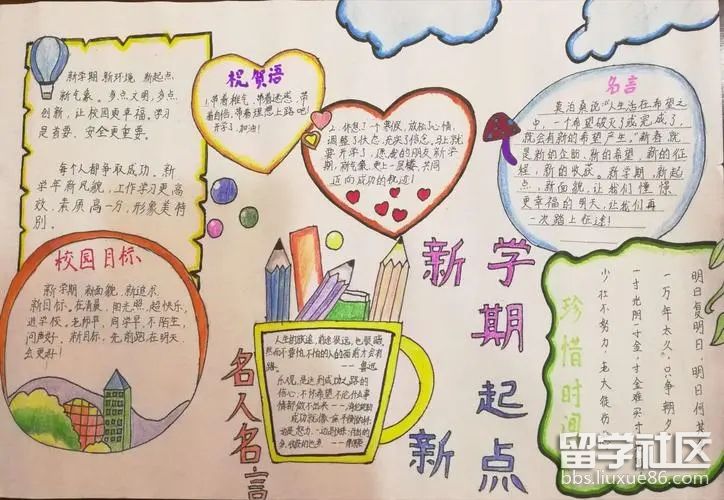 新学期，新环境，新起点
新气象。多点文明，多点
创新，让校园更幸福。学习
是首要，安全更重要。
每个人都争取成功，新
学年新风貌，工作学习更高
效。素质高一分，形象美特
别。
祝贺语
1.带着稚气，带着迷惑，带
着自信，带着理想上路吧！
开学了，加油！
2.休息了一个寒假，放松心情，
调整了状态，充实了信念。马上就
要开学了，愿我的朋友新学
期，新气象，更上一层楼，共同
迈向成功的轨道！
名言
莫泊桑说"人生活在希望之
中，一个希望破灭了或完成了，
就会有新的希望产生。"新春就
是新的企盼、新的希望、新的征
程、新的收获。新学期，新起
点，新面貌，让我们憧憬
更幸福的明天，让我们再
一次踏上征途！
校园目标
新学期，新面貌，新追求，
新目标。在清晨，阳光照，超快乐，
进学校。老师早，同学早，不陌生，
问声好。新目标，先前跑，在明天
会更好！
名人名言
人生的旅途，前途很远，也很暗。
然而不要怕，不怕的人的面前才会有
路。——鲁迅
乐观，是达到成功之路的
信心；不怀希望，不论什么事
情都做不出来
新学期
新起点
珍惜时间
明日复明日，明日何其
一万年太久，只争朝夕
一寸光阴一寸金，寸金难买寸
少壮不努力，老大徒伤
留学社区
bbs.liuxue86.com